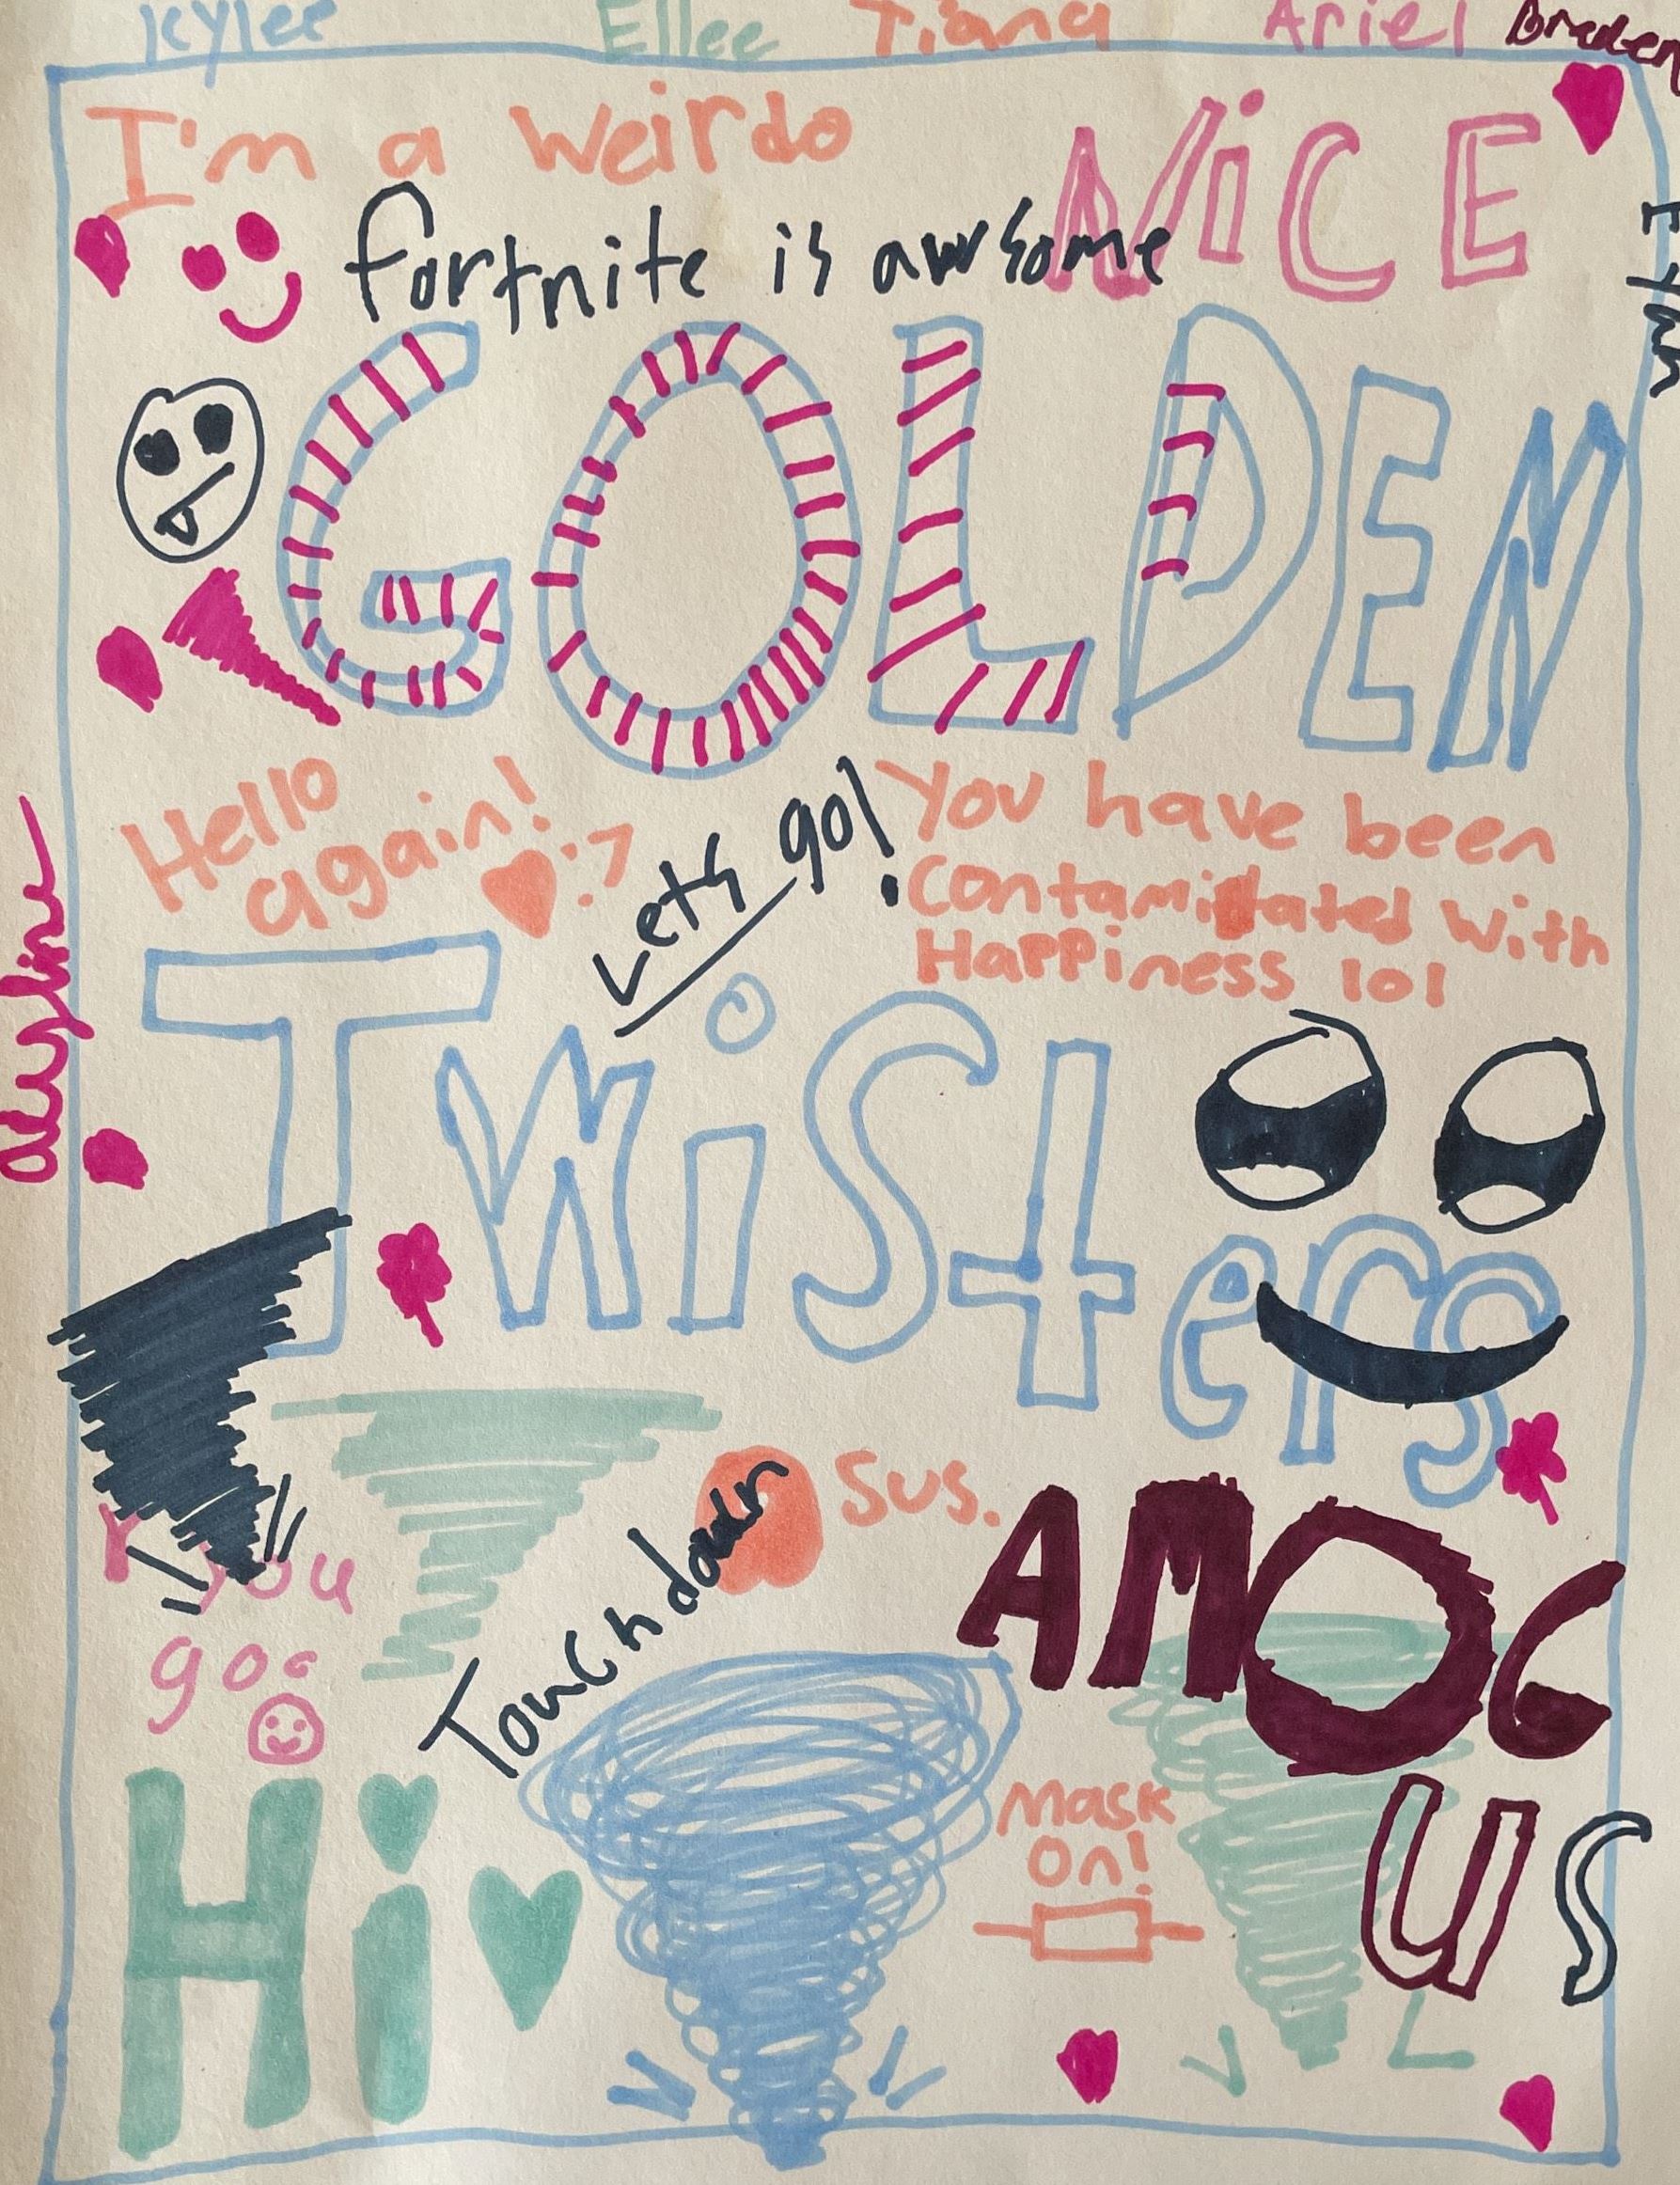 Kylee Ellee Tiana Ariel Braden
I'm a Weirdo
NiCE
fortnite is awsome
GOLDEN
Hello
again! :7
Lets go!
You have been
Contaminated with
Happiness lol
Twisters
Sus.
AMOG
US
Touch down
you
go
Hi
Mask
On!